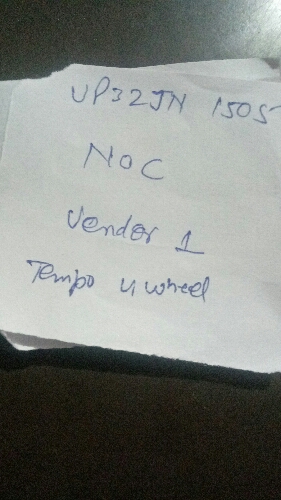 UP32JN 1505
NOC
Vendor 1
Tempo 4 wheel